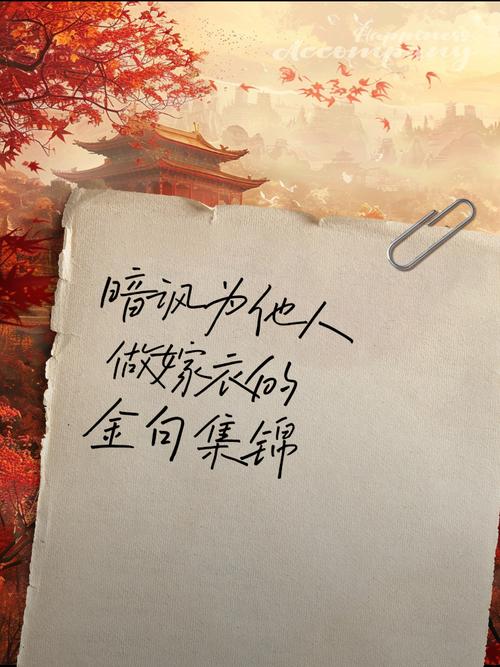 Happiness
Accompany
暗讽为他人
做嫁衣的
金句集锦